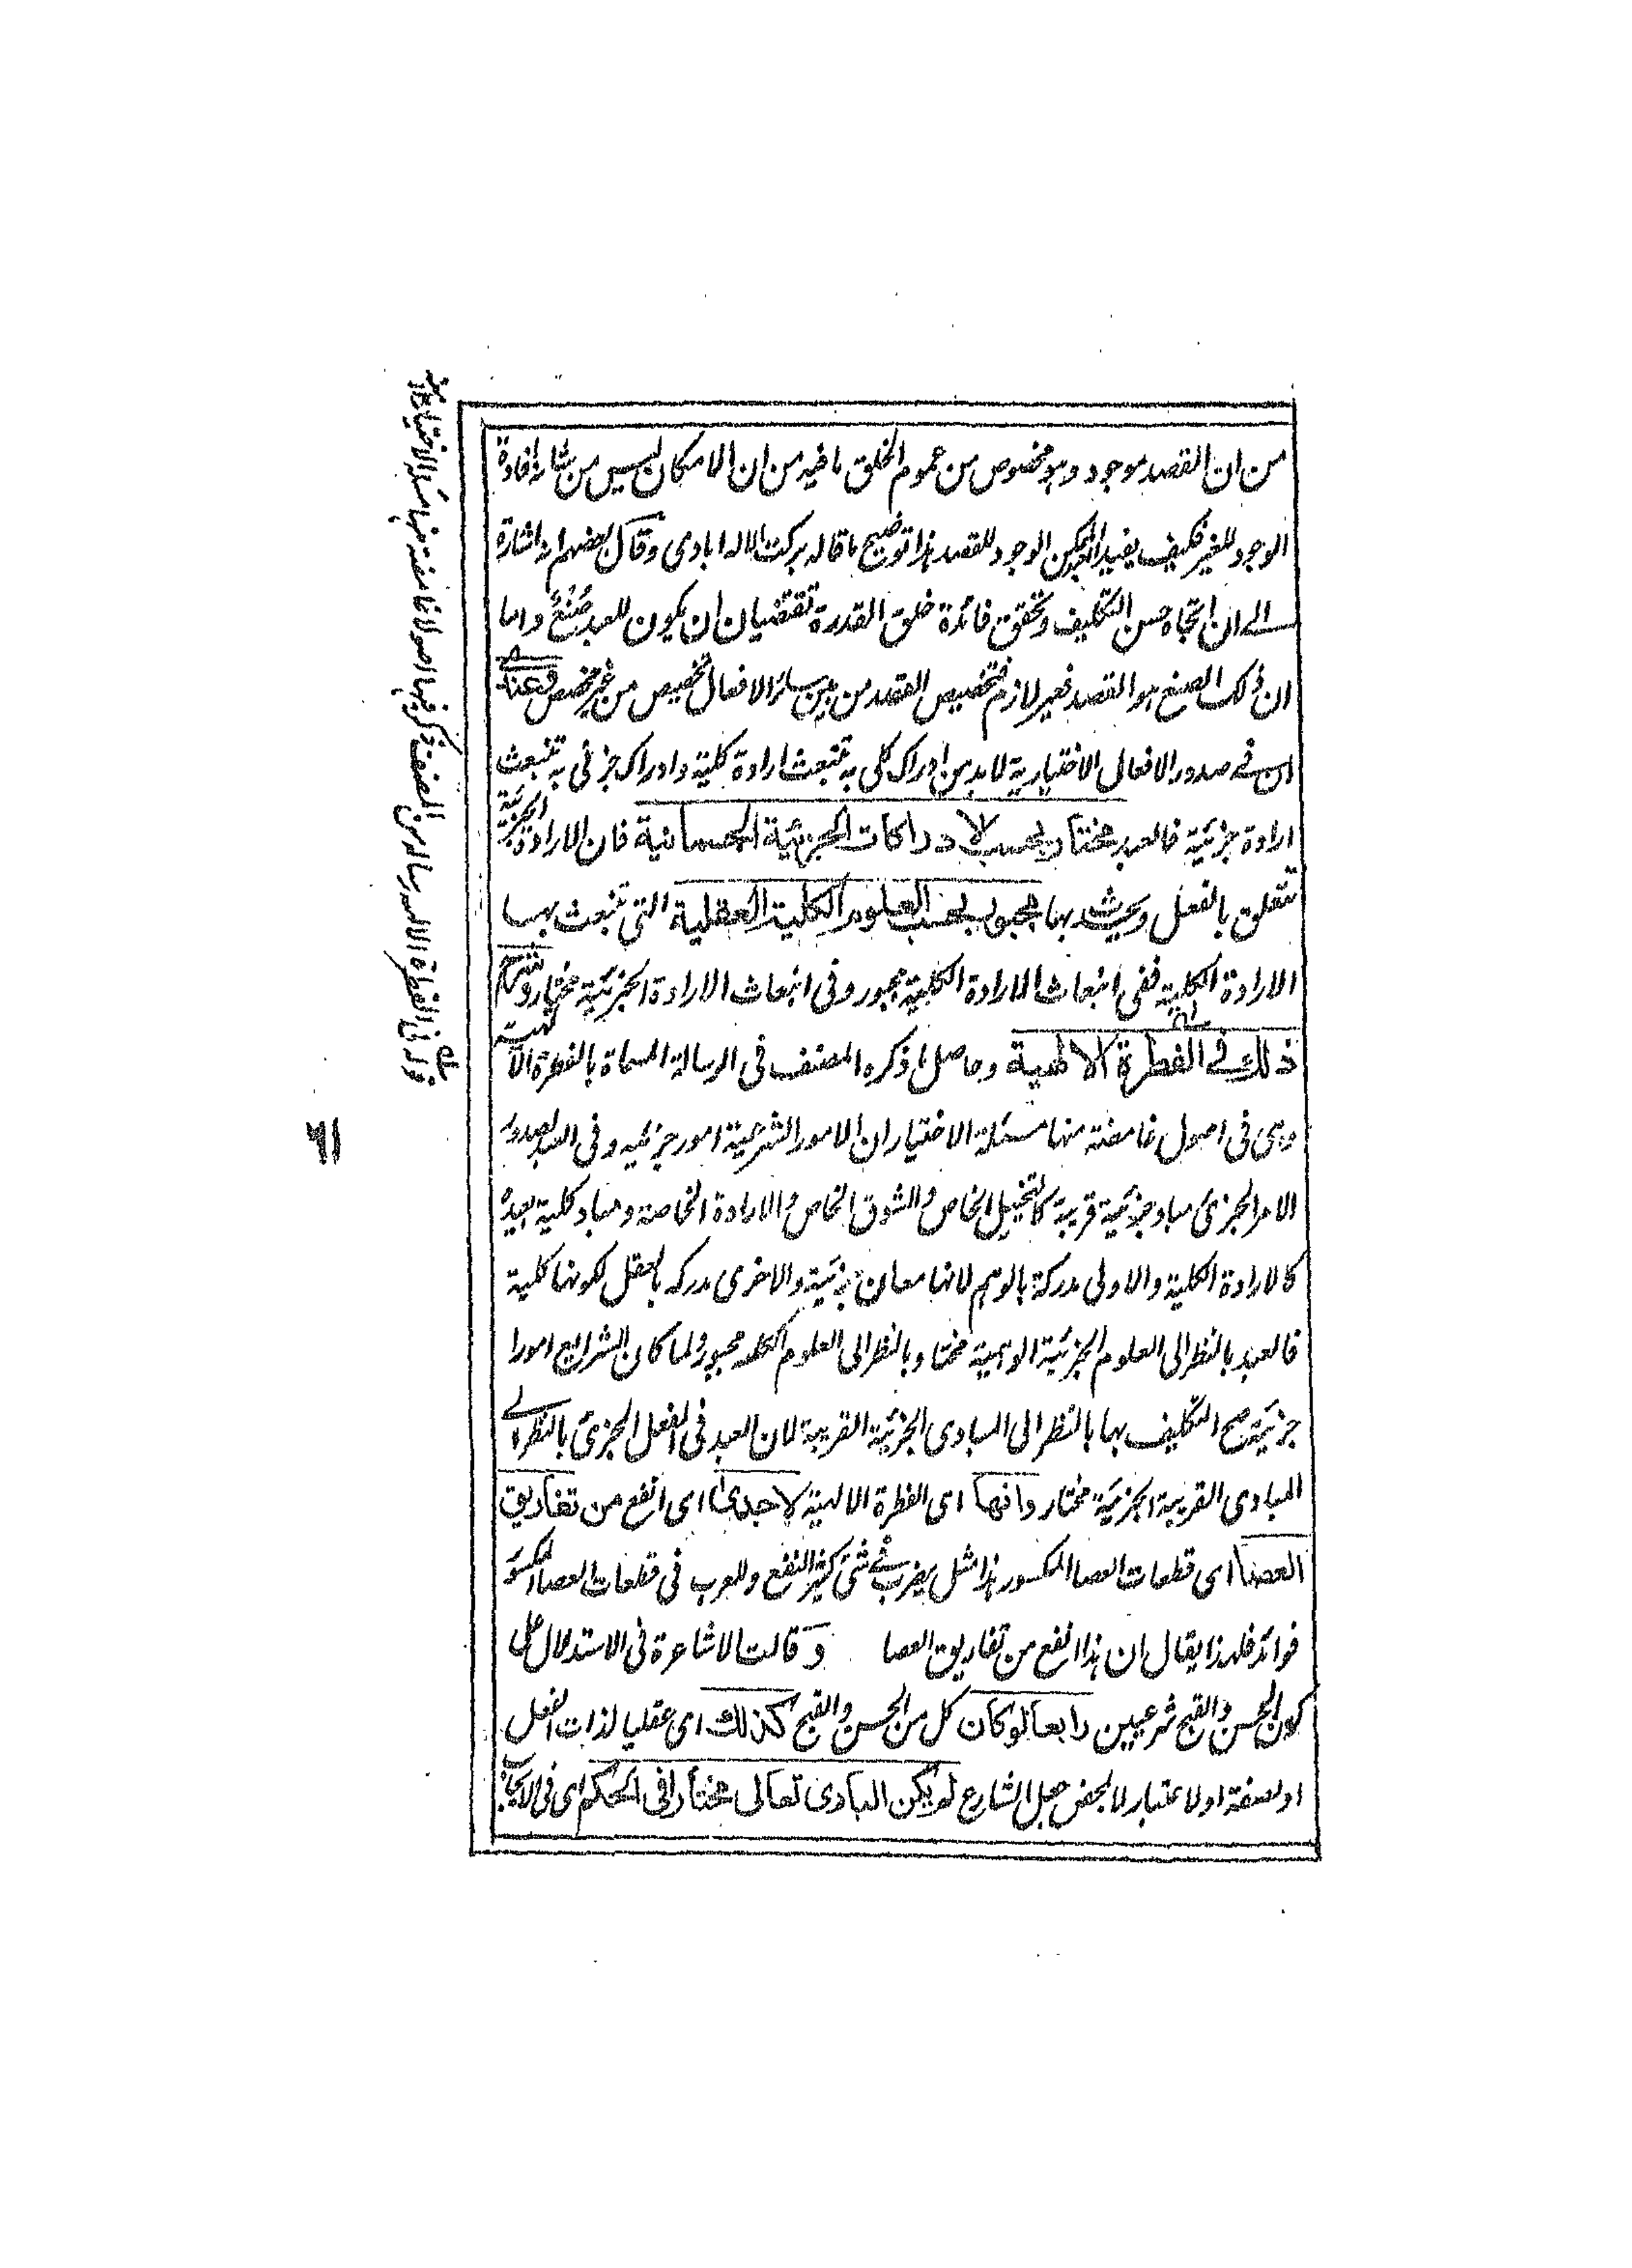 من ان القصد موجود وهو مخصوص من عموم الخلق ما فيه من ان الامكان ليس من شانه افادة
الوجود للغير فكيف يفيد العبد الممكن الوجود للقصد هذا توضيح ما قاله بركت الاله ابادى وقال بعضهم انه اشارة
الى ان اتجاه حسن التكليف وتحقق فائدة خلق القدرة تقتضيان ان يكون للعبد صُنعٌ واما
ان ذلك الصنع هو القصد فغير لازم فتخصيص القصد من بين سائر الافعال تخصيص من غير مخصص وعندى
ان فى صدور الافعال الاختيارية لا بد من ادراك كلى به تنبعث ارادة كلية وادراك جزئى به تنبعث
ارادة جزئية فالعبد مختار بحسب الادراكات الجزئية الجسمانية فان الارادة الجزئية
تتعلق بالفعل ويحدث بها مجبور بحسب العلوم الكلية العقلية التى تنبعث بها
الارادة الكلية ففى انبعاث الارادة الكلية مجبور وفى انبعاث الارادة الجزئية مختار وشرح
ذلك فى الفطرة الالهية وحاصل ما ذكره المصنف فى الرسالة المسماة بالفطرة الالهية
وهى فى اصول غامضة منها مسئلة الاختيار ان الامور الشرعية امور جزئيه وفى العبد لصدور
الامر الجزئى مباد جزئية قريبة كالتخيل الخاص والشوق الخاص والارادة الخاصة ومباد كلية بعيدة
كالارادة الكلية والاولى مدركة بالوهم لانها معان جزئية والاخرى مدركه بالعقل لكونها كلية
فالعبد بالنظر الى العلوم الجزئية الوهمية مختار وبالنظر الى العلوم الكليه مجبور ولما كان الشرايع امورا
جزئية صح التكليف بها بالنظر الى المبادى الجزئية القريبة لان العبد فى الفعل الجزئى بالنظر الى
المبادى القريبة الجزئية مختار وانها اى الفطرة الالهية لاجدى اى انفع من تفاريق
العصا اى قطعات العصا المكسور هذا مثل يضرب فى شئ كثير النفع وللعرب فى قطعات العصا المكسور
فوائد فلهذا يقال ان هذا انفع من تفاريق العصا و قالت الاشاعرة فى الاستدلال على
كون الحسن والقبح شرعيين رابعا لو كان كل من الحسن والقبح كذلك اى عقليا لذات الفعل
او لصفة او لاعتبار لا لمحض جعل الشارع لم يكن البارى تعالى مختارا فى الحكم اى فى الايجاب
قوله فى الفطرة الالهية رسالة من المصنف ذكر فيها اصولا غامضة منها مسئلة الاختيار
٦١